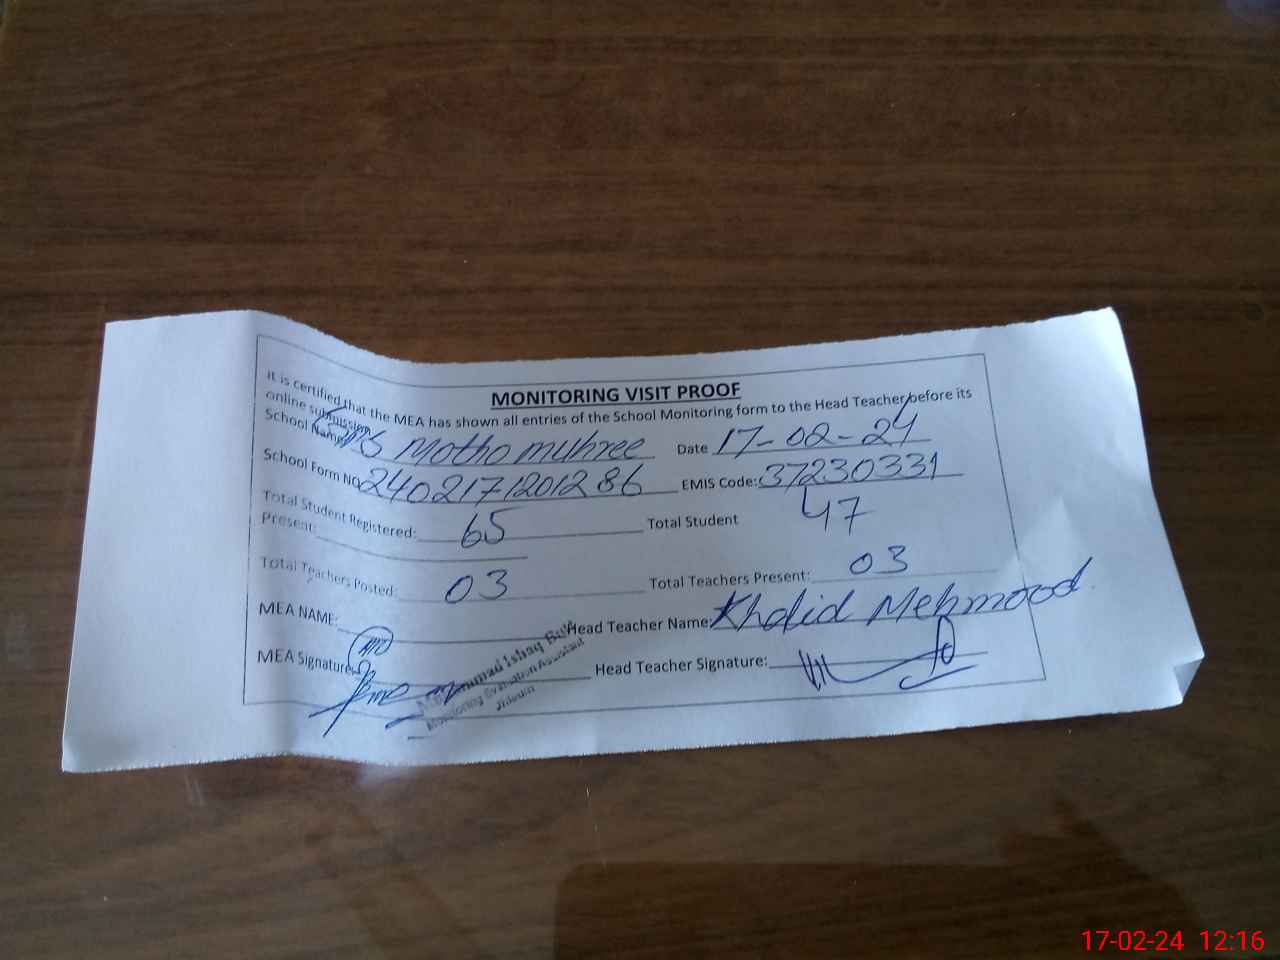 MONITORING VISIT PROOF
It is certified that the MEA has shown all entries of the School Monitoring form to the Head Teacher before its
online submission
School Name: Motho muhree Date 17-02-24
School Form No 2402171201286 EMIS Code: 37230331
Total Student Registered: 65 Total Student 47
Present:
Total Teachers Posted: 03 Total Teachers Present: 03
MEA NAME: Head Teacher Name: Khalid Mehmood.
MEA Signature: Head Teacher Signature:
Muhammad Ishaq
Monitoring Evaluation Assistant
Jhelum
17-02-24 12:16